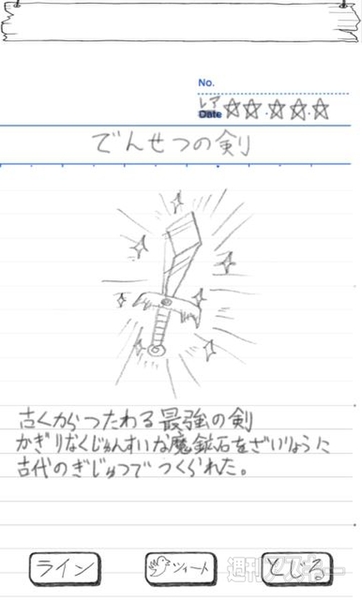 No.
レア
Date ☆☆.☆.☆.☆
でんせつの剣
古くからつたわる最強の剣
かぎりなくじゅんすいな魔鉱石をざいりょうに
古代のぎじゅつでつくられた。
ライン
ツイート
とじる
週刊アスキー